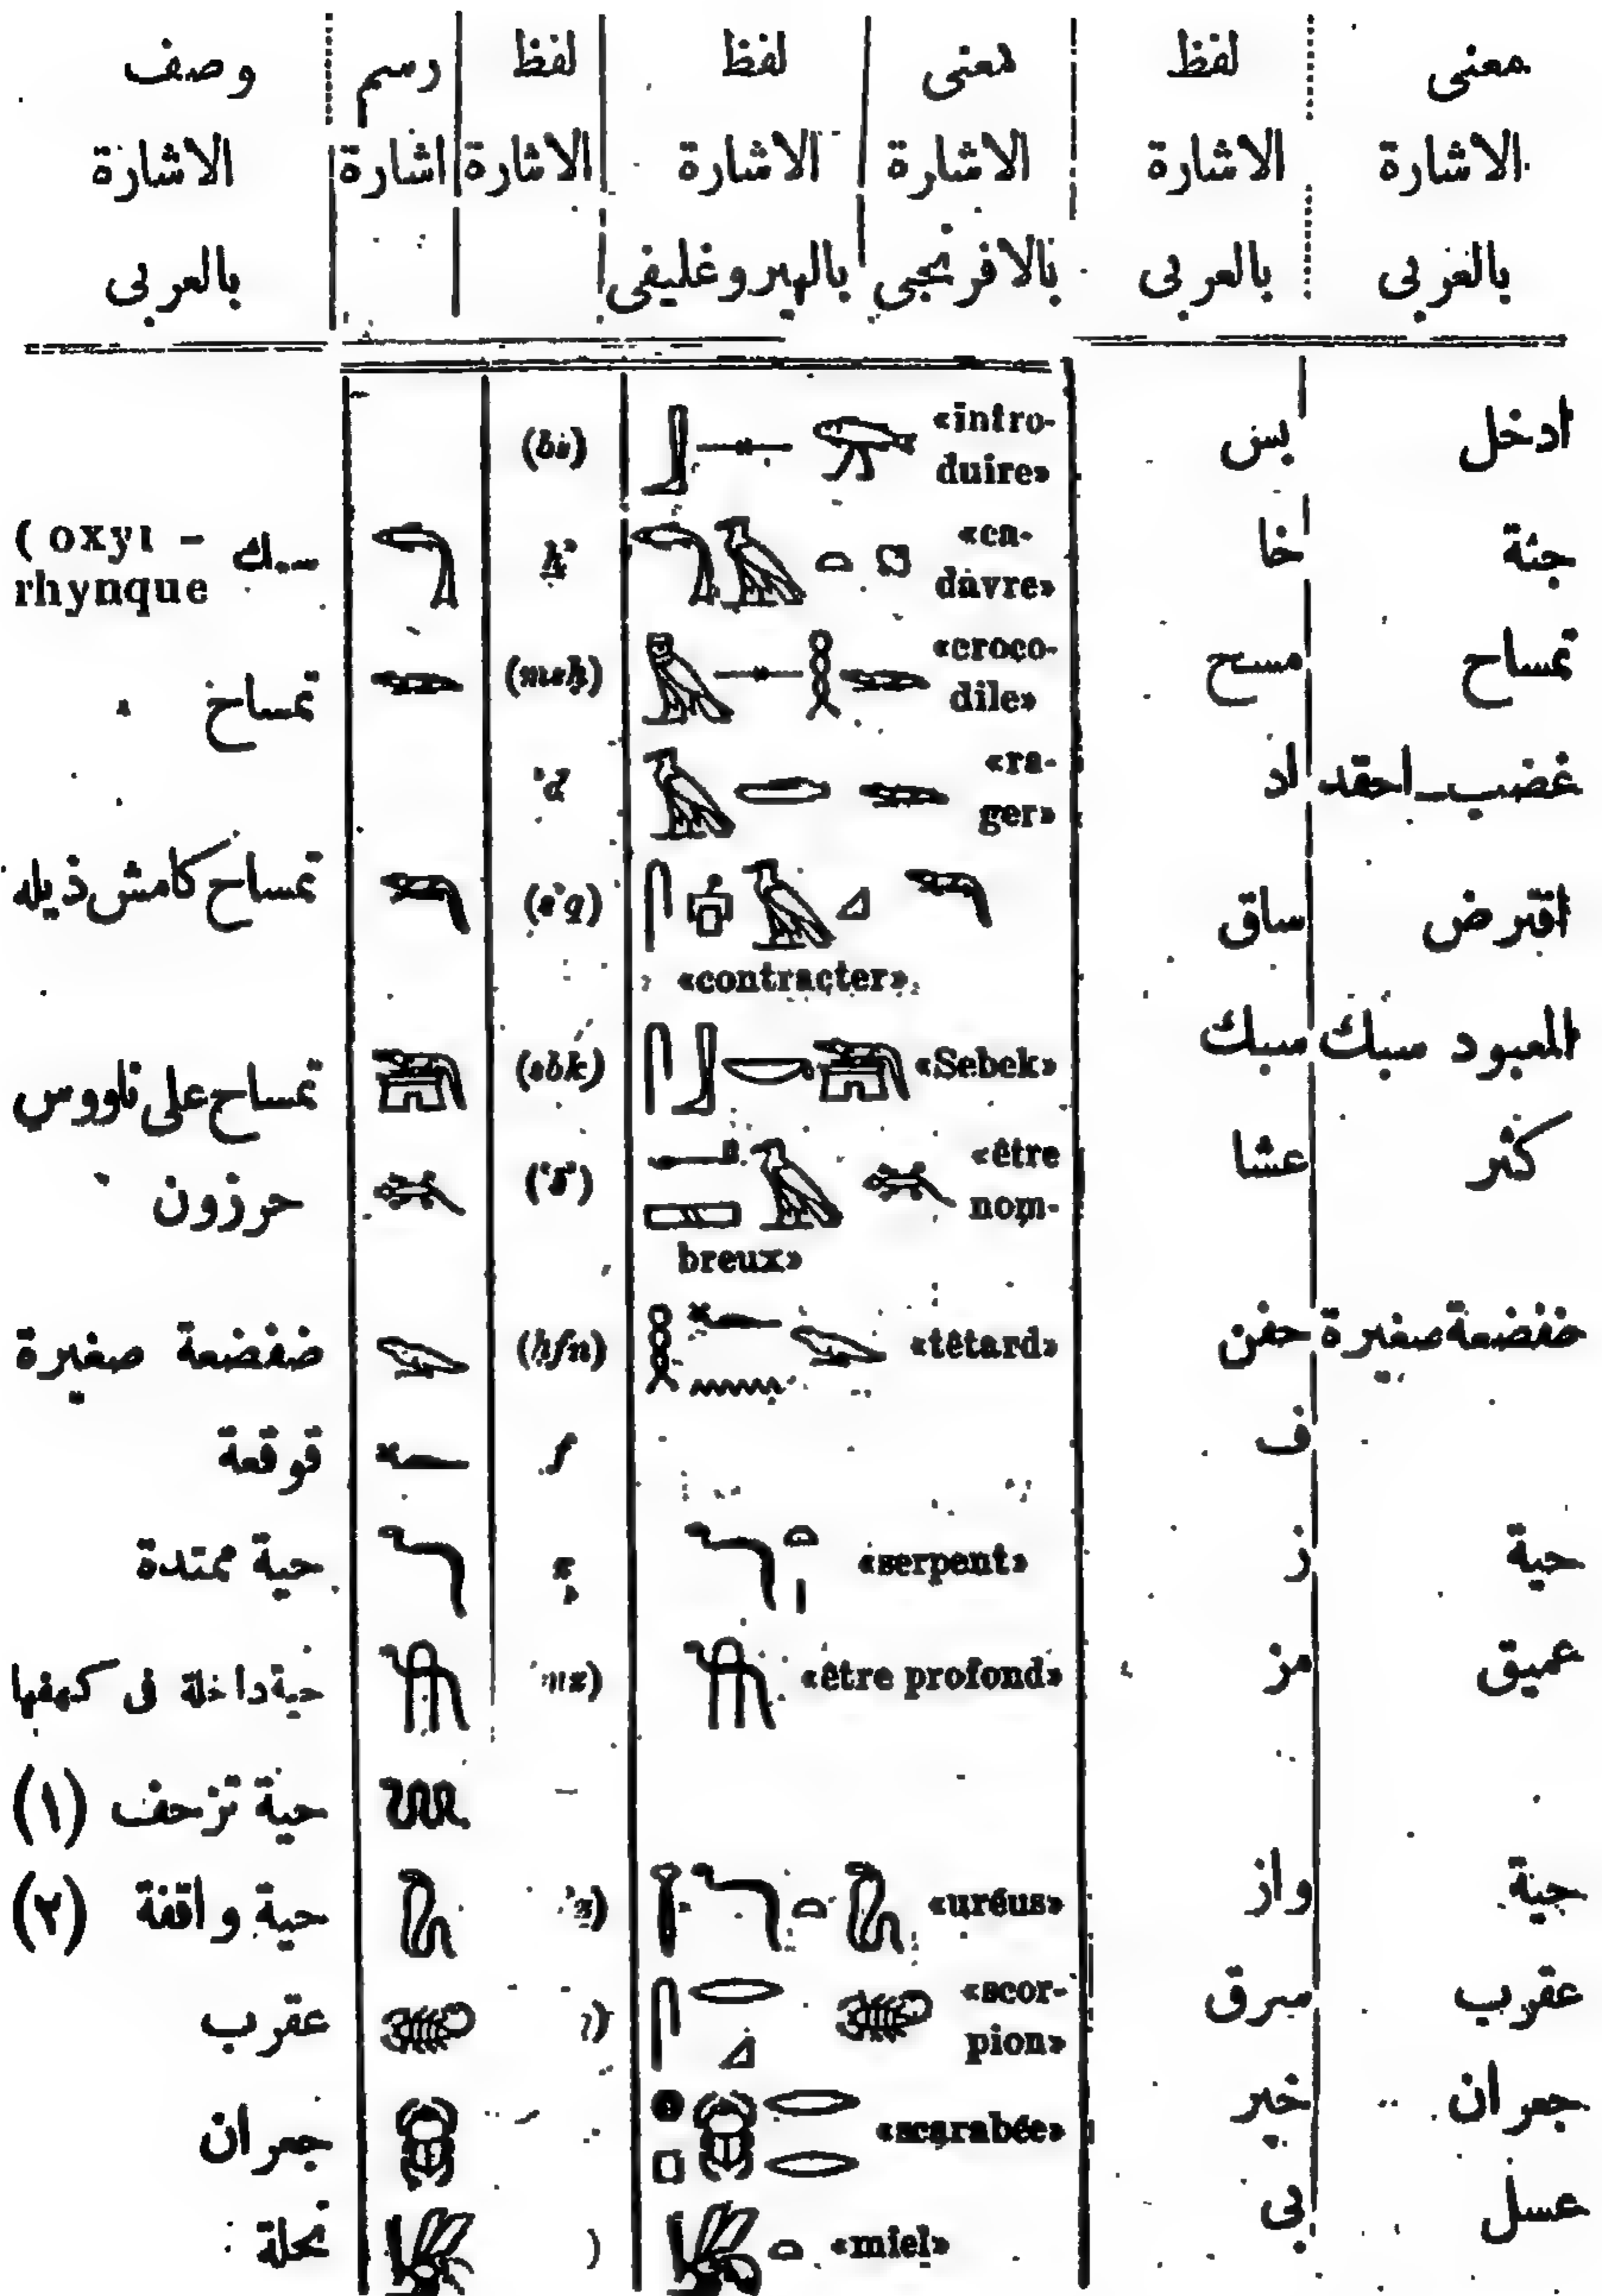 معنى | لفظ | معنى | لفظ | لفظ | رسم | وصف
الاشارة | الاشارة | الاشارة | الاشارة | الاشارة | اشارة | الاشارة
بالعربى | بالعربى | بالافرنجى | بالهيروغليفى | بالعربى
ادخل | بس | «intro-duire» | (bs)
جثة | خا | «ca-davre» | ẖꜣ | سمك (oxyr-rhynque
تمساح | مسح | «croco-dile» | (msḥ) | تمساح
غضب ـ احقد | اد | «ra-ger» | ꜣd
اقترض | ساق | «contracter» | (sꜣq) | تمساح كامش ذيله
المعبود سبك | سبك | «Sebek» | (sbk) | تمساح على ناووس
كثر | عشا | «être nom-breux» | (ꜥšꜣ) | حرزون
ضفضعة صغيرة | حفن | «têtard» | (ḥfn) | ضفضعة صغيرة
ف | f | قوقعة
حية | ز | «serpent» | ẕ | حية ممتدة
عميق | مز | «être profond» | حية داخلة فى كهفها
حية تزحف (١)
حية | واز | «uréus» | حية واقفة (٢)
عقرب | سرق | «scor-pion» | عقرب
جعران | خبر | «scarabée» | جعران
عسل | بى | «miel» | نحلة